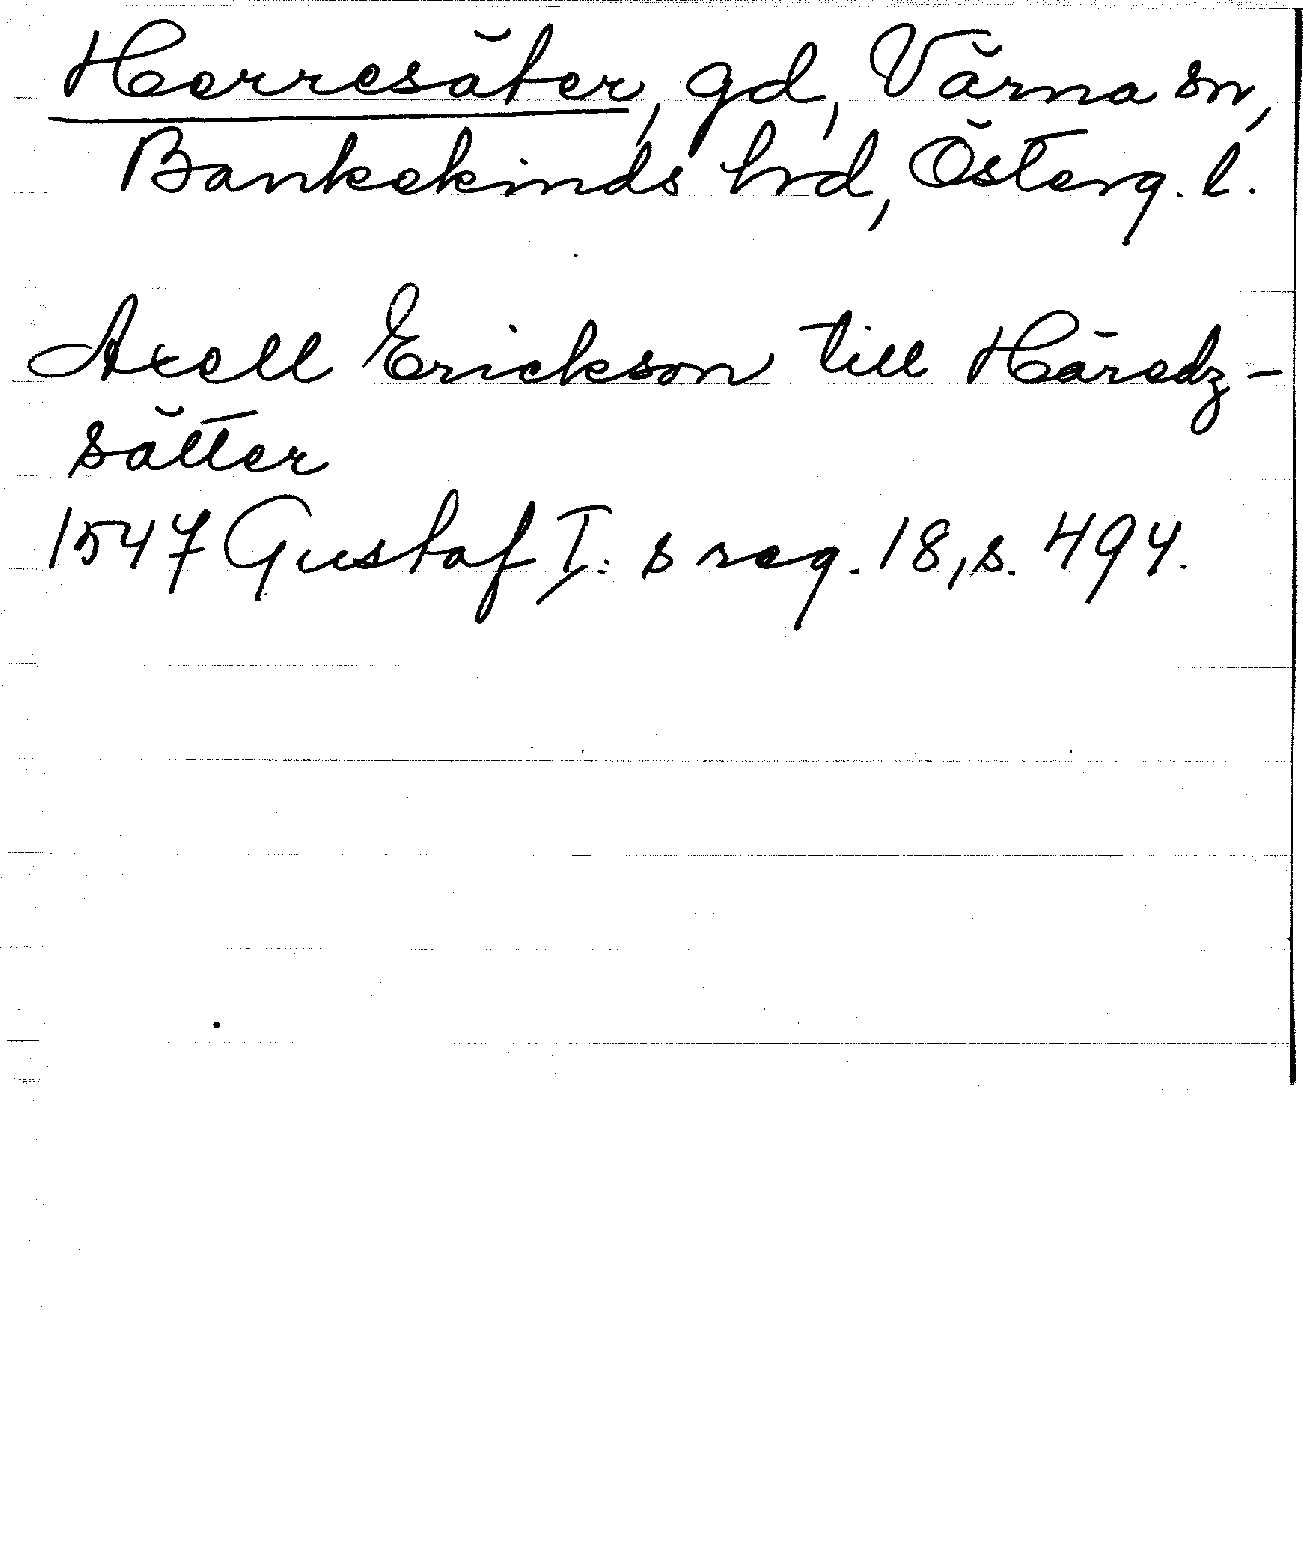 Herresäter, gd, Värna sn,
Bankekinds hrd, Österg. l.
Axell Erickson till Häredz-
sätter
1547 Gustaf I: s reg. 18, s. 494.